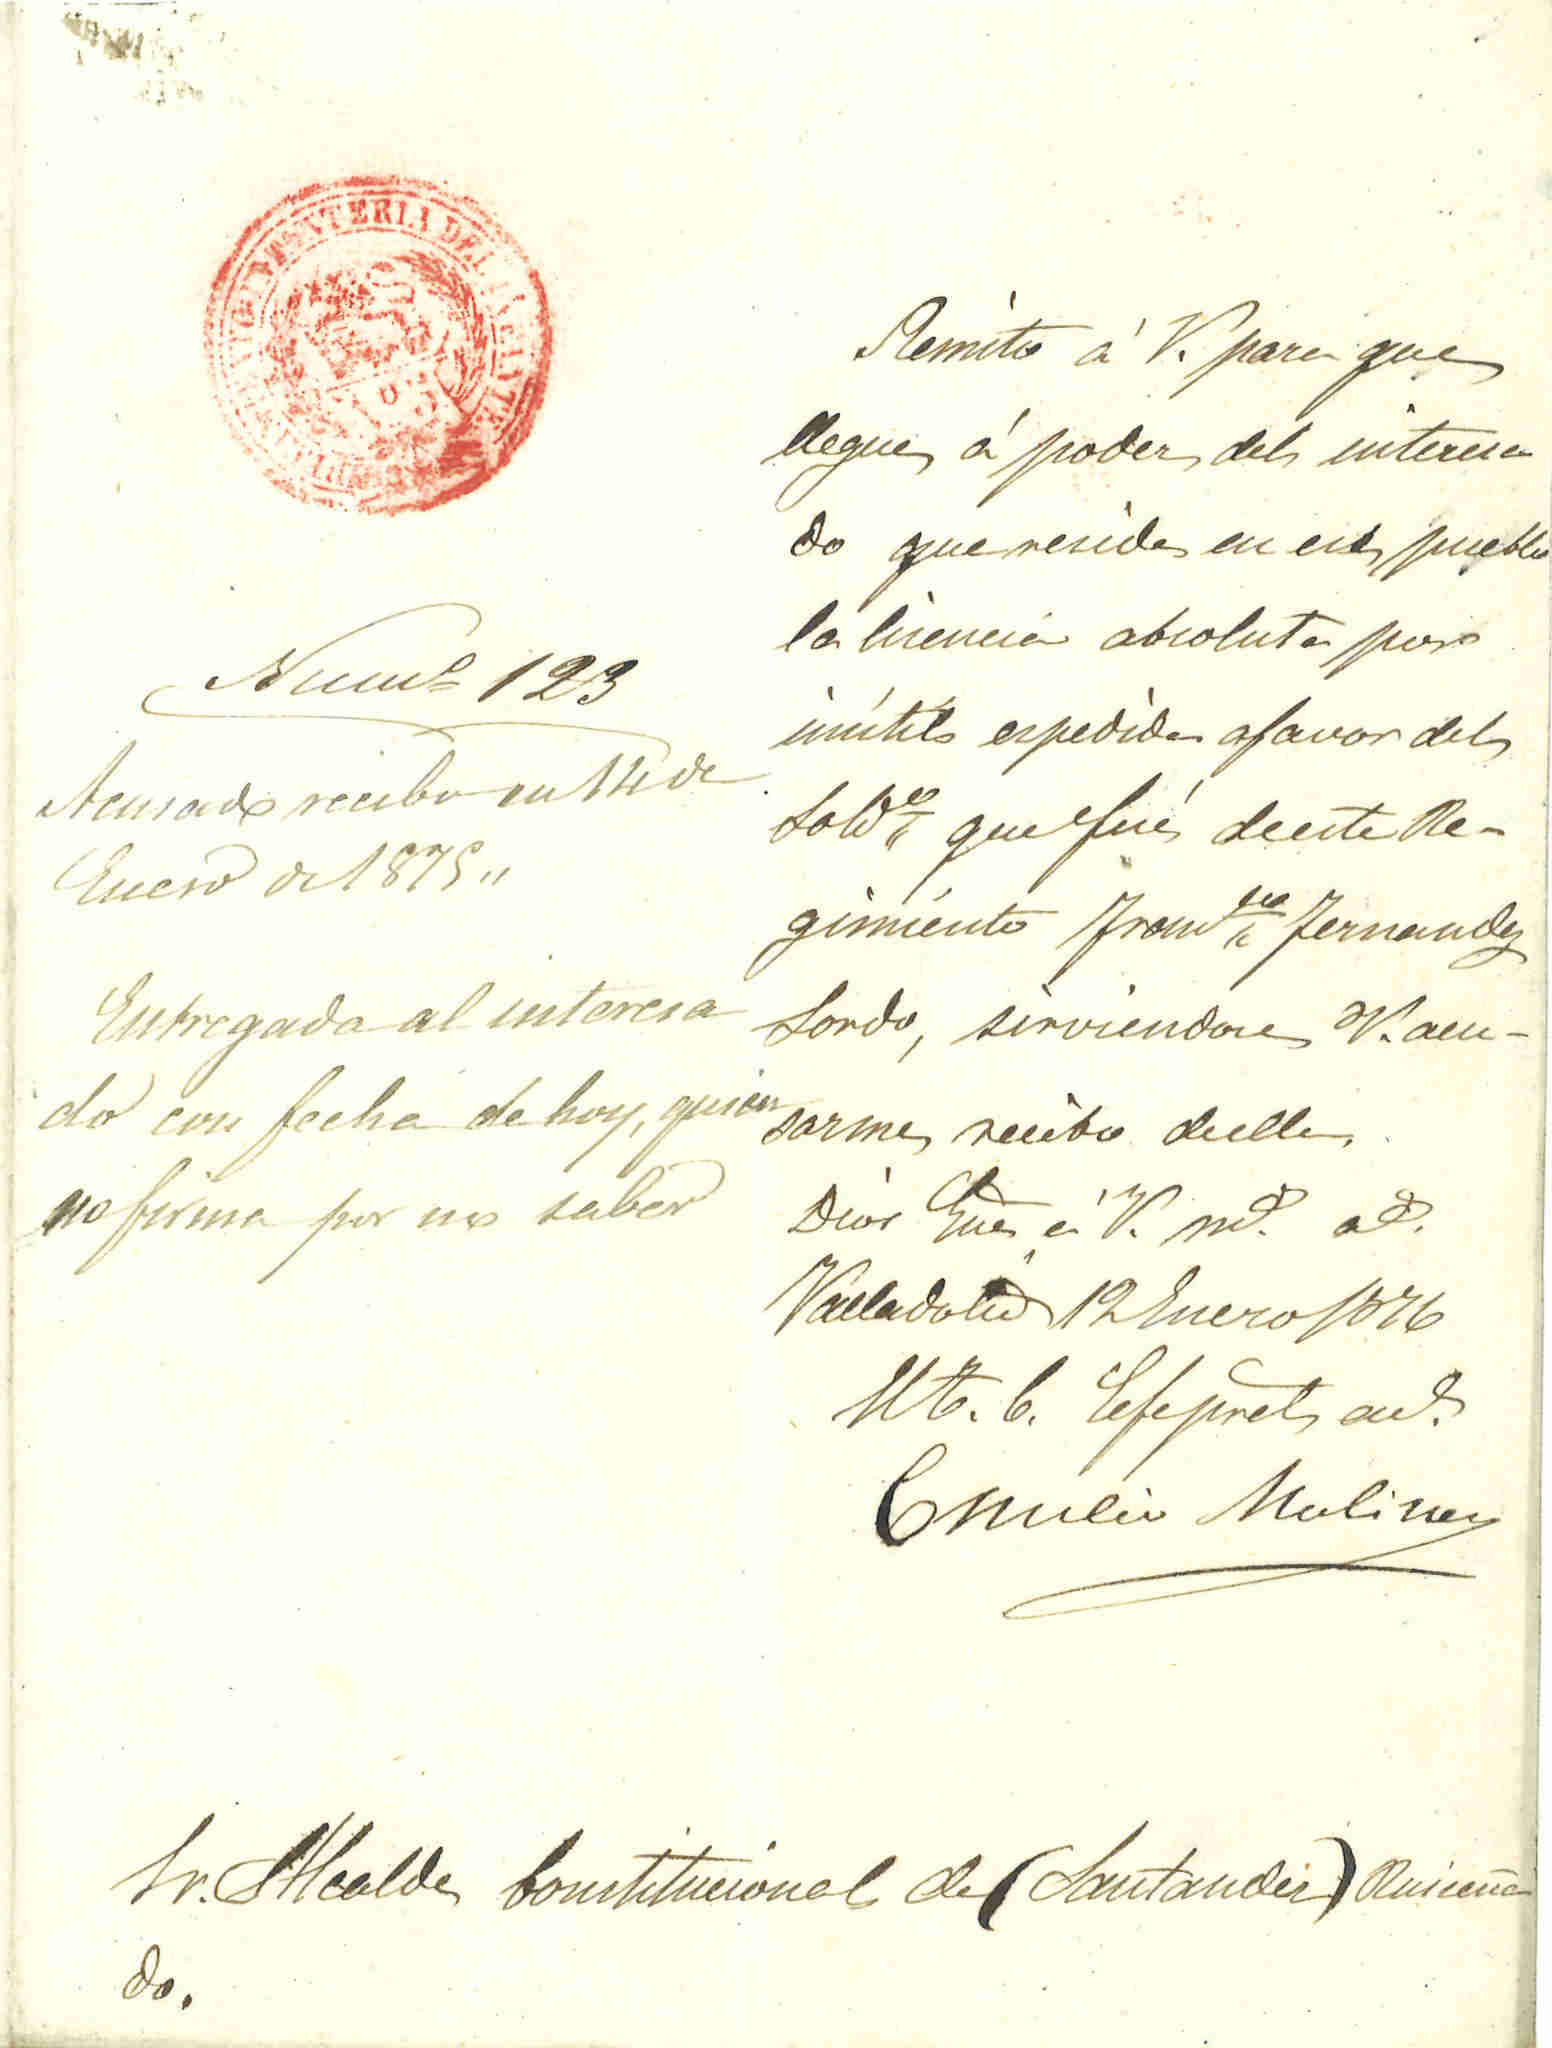 Numº 123
Acusado recibo en 14 de
Enero de 1875,,
Entregada al interesa
do con fecha de hoy, quien
no firma por no saber
Remito á V. para que
llegue á poder del interesa
do que reside en ese pueblo
la licencia absoluta por
inútil espedida a favor del
Soldº que fué de este Re-
gimiento Franᶜᵒ Fernandez
Sordo, sirviendose V. acu-
sarme recibo de ella.
Dios Gue á V. mˢ. aˢ.
Valladolid 12 Enero 1876
El T. C. Gefe pral acᵈ.
Emilio Molina
Sr. Alcalde Constitucional de (Santander) Ruiseña
da.